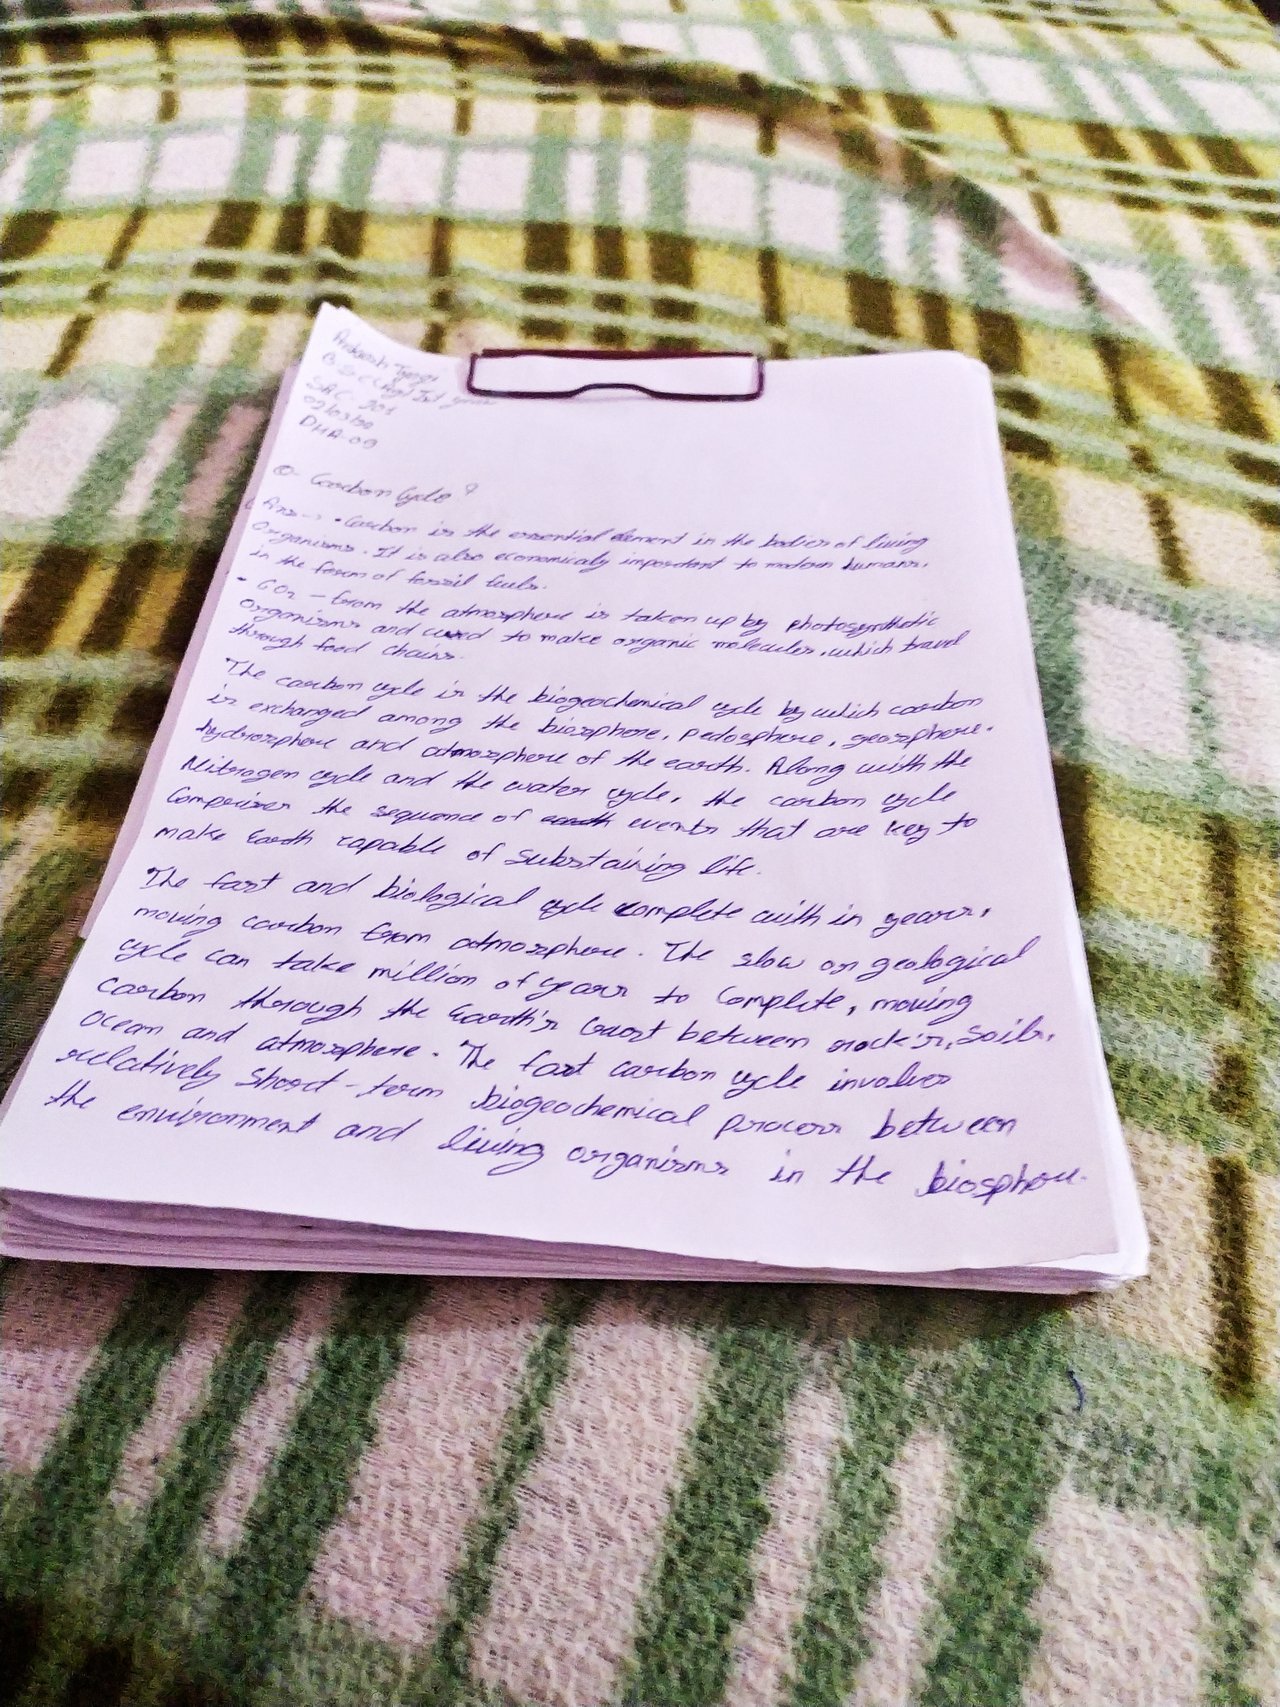 Tyagi
B.Sc (Ag) Ist year
SAC. 201
DHA-09
Q- Carbon Cycle ?
Ans → • Carbon is the essential element in the bodies of living
organisms. It is also economicaly important to modern humans,
in the form of fossil fuels.
• CO2 - from the atmosphere is taken up by photosynthetic
organisms and used to make organic molecules, which travel
through food chains.
• The carbon cycle is the biogeochemical cycle by which carbon
is exchanged among the biosphere, pedosphere, geosphere,
hydrosphere and atmosphere of the earth. Along with the
Nitrogen cycle and the water cycle, the carbon cycle
Comprises the sequence of earth events that are key to
make Earth capable of substaining life.
• The fast and biological cycle complete with in years,
moving carbon from atmosphere. The slow or geological
cycle can take million of years to Complete, moving
carbon through the Earth's Crust between rock's, soil,
Ocean and atmosphere. The fast carbon cycle involves
relatively short-term biogeochemical process between
the environment and living organisms in the biosphere.